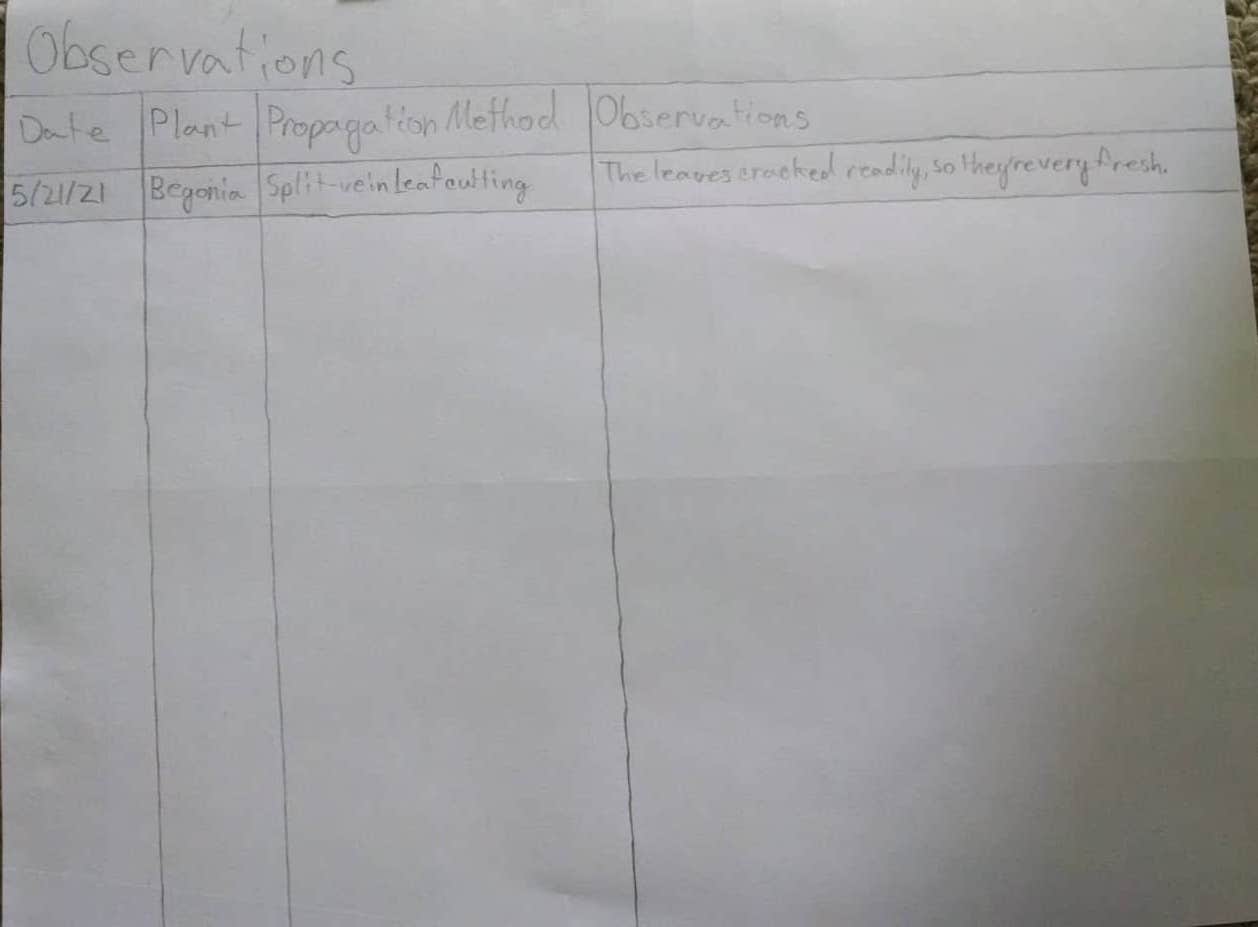 Observations
Date Plant Propagation Method Observations
5/21/21 Begonia Split-vein Leaf cutting The leaves cracked readily, so they're very fresh.